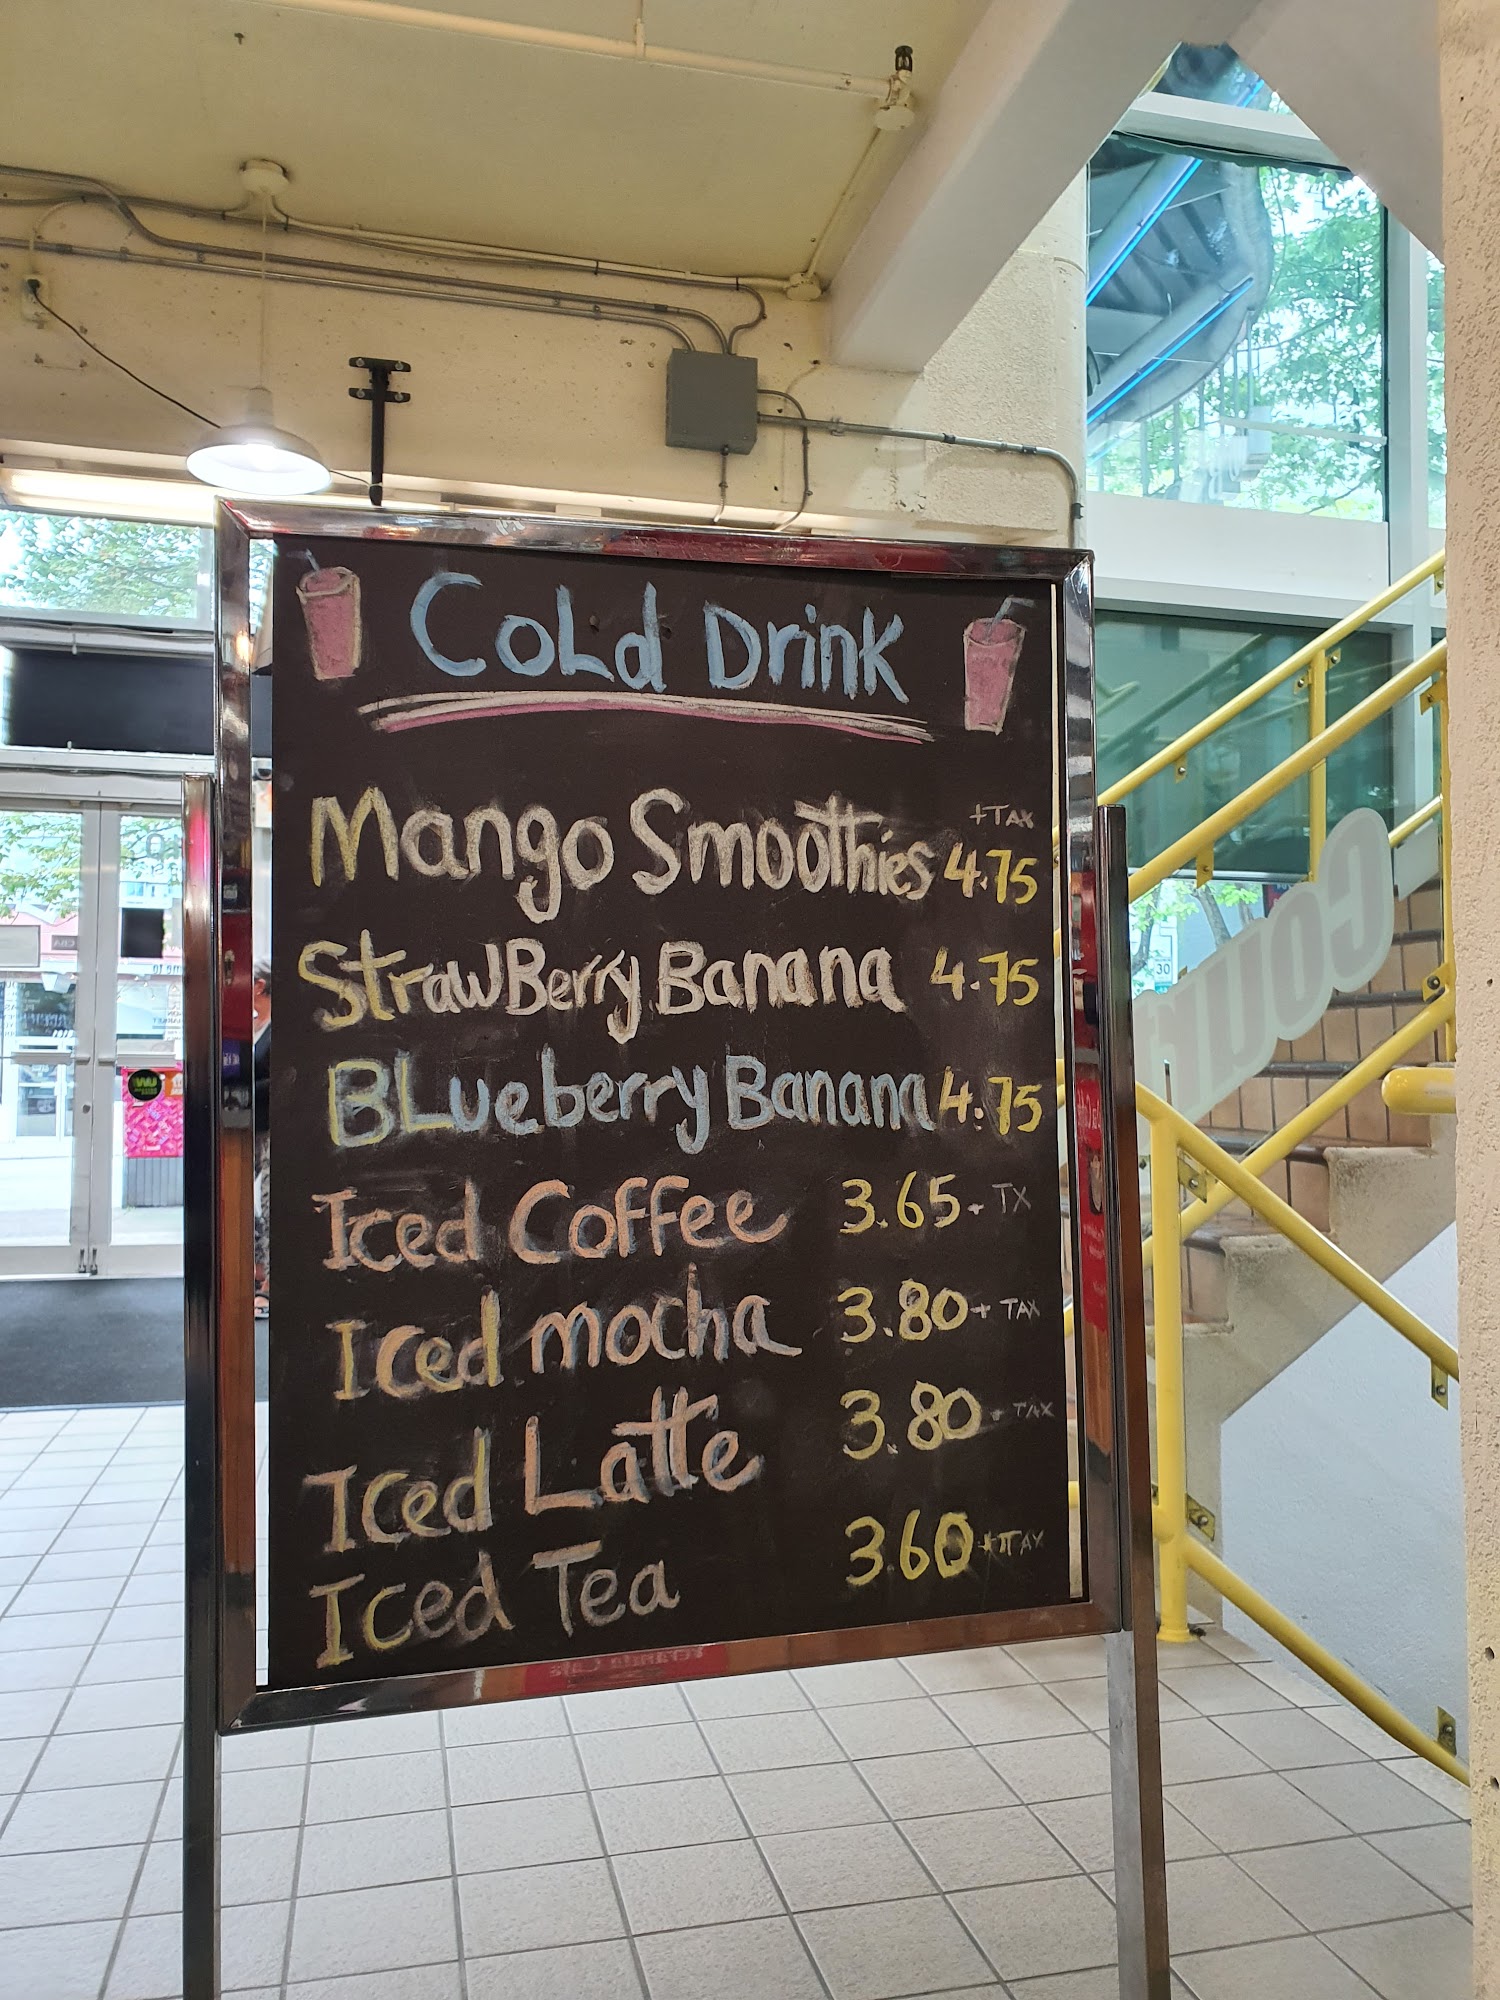 Cold Drink
+TAX
Mango Smoothies 4.75
StrawBerry Banana 4.75
BLueberry Banana 4.75
Iced Coffee 3.65 + TX
Iced mocha 3.80 + TAX
Iced Latte 3.80 + TAX
Iced Tea 3.60 + TAX
Court
30